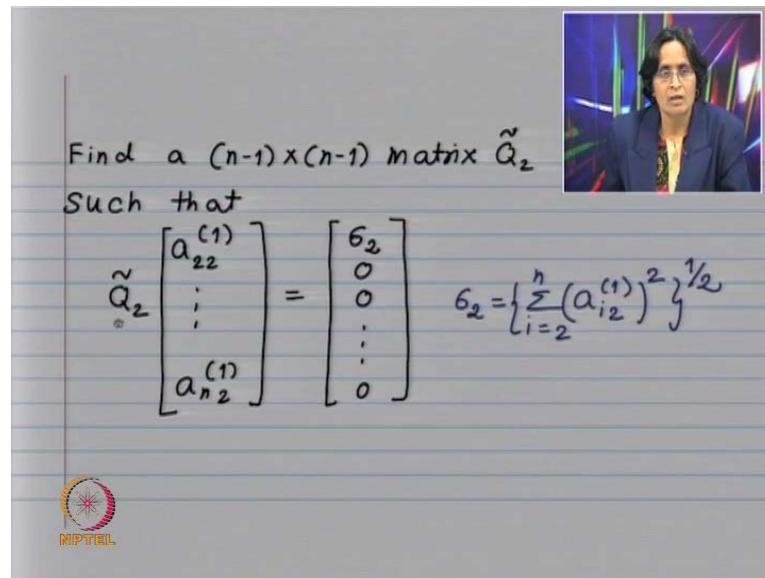 Find a (n-1)×(n-1) matrix Q̃₂
Such that
Q̃₂ [a₂₂⁽¹⁾ ⋮ aₙ₂⁽¹⁾] = [σ₂ 0 0 ⋮ 0] σ₂ = {Σᵢ₌₂ⁿ (aᵢ₂⁽¹⁾)²}^1/2
NPTEL